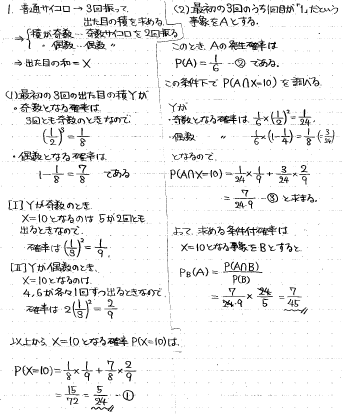 1. 普通サイコロ → 3回振って、
出た目の積を求める
⇒ {積が奇数…奇数サイコロを2回振る
〃 偶数…偶数 〃
⇒ 出た目の和 = X
(1) 最初の3回の出た目の積Yが
・奇数となる確率は
3回とも奇数のときなので、
(1/2)³ = 1/8
・偶数となる確率は
1 - 1/8 = 7/8 である
[I] Yが奇数のとき
X=10となるのは 5が2回とも
出るときなので、
確率は (1/3)² = 1/9
[II] Yが偶数のとき、
X=10となるのは
4,6が各々1回ずつ出るときなので
確率は 2(1/3)² = 2/9
以上から X=10となる確率 P(X=10)は、
P(X=10) = 1/8 × 1/9 + 7/8 × 2/9
= 15/72 = 5/24 …①
(2) 最初の3回のうち1回目が"1"だという
事象をAとする。
このとき、Aの発生確率は
P(A) = 1/6 …② である。
この条件下で P(A∩X=10) を調べる
Yが
・奇数となる確率は 1/6 × (1/2)² = 1/24
・偶数 〃 1/6 × (1 - 1/4) = 1/8 (= 3/24)
となるので、
P(A∩X=10) = 1/24 × 1/9 + 3/24 × 2/9
= 7/24·9 …③ と求まる。
よって、求める条件付確率は
X=10となる事象をBとすると
P_B(A) = P(A∩B)/P(B)
= 7/24·9 × 24/5 = 7/45